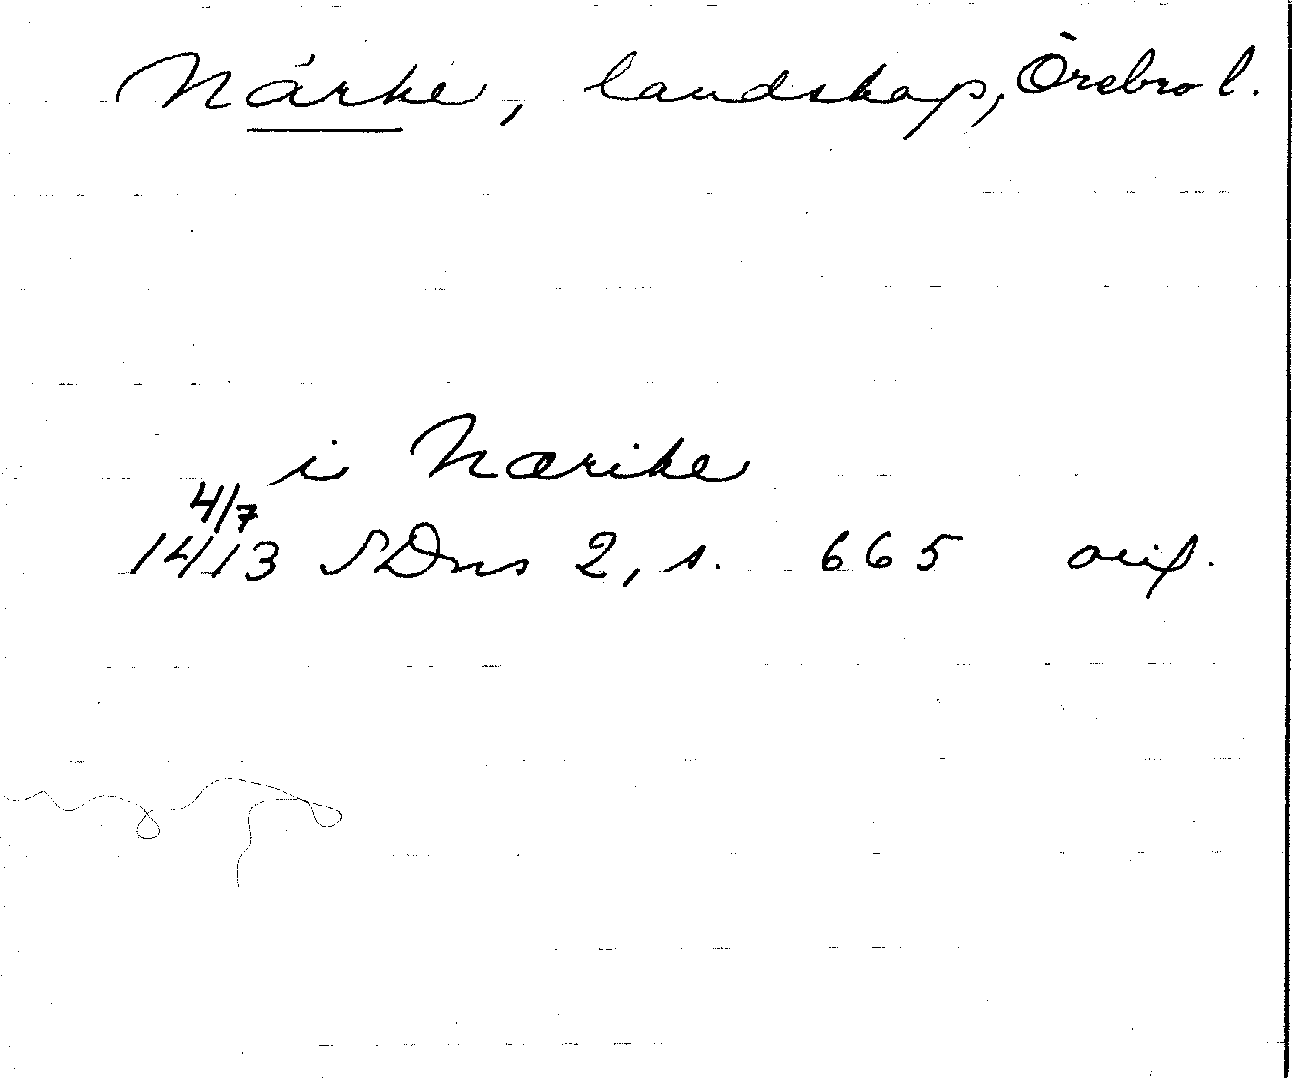 Närke, landskap, Örebro l.
i Nærike
4/7
1413 SDns 2, s. 665 orig.